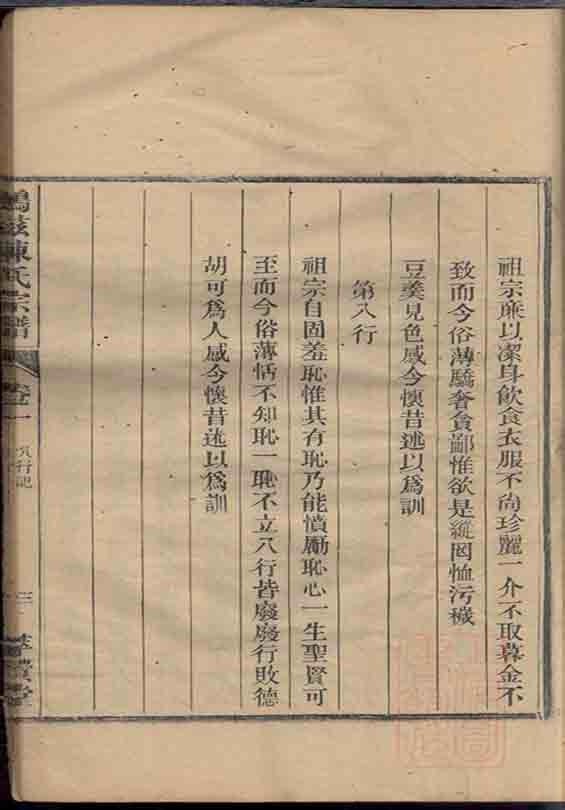 祖宗廉以潔身飲食衣服不尚珍麗一介不取暮金不
致而今俗薄驕奢貪鄙惟欲是縱罔恤污穢
豆羹見色感今懷昔述以為訓
第八行
祖宗自固羞恥惟其有恥乃能憤勵恥心一生聖賢可
至而今俗薄恬不知恥一恥不立八行皆廢廢行敗德
胡可為人感今懷昔述以為訓
陳氏宗譜
卷一
八行記
三